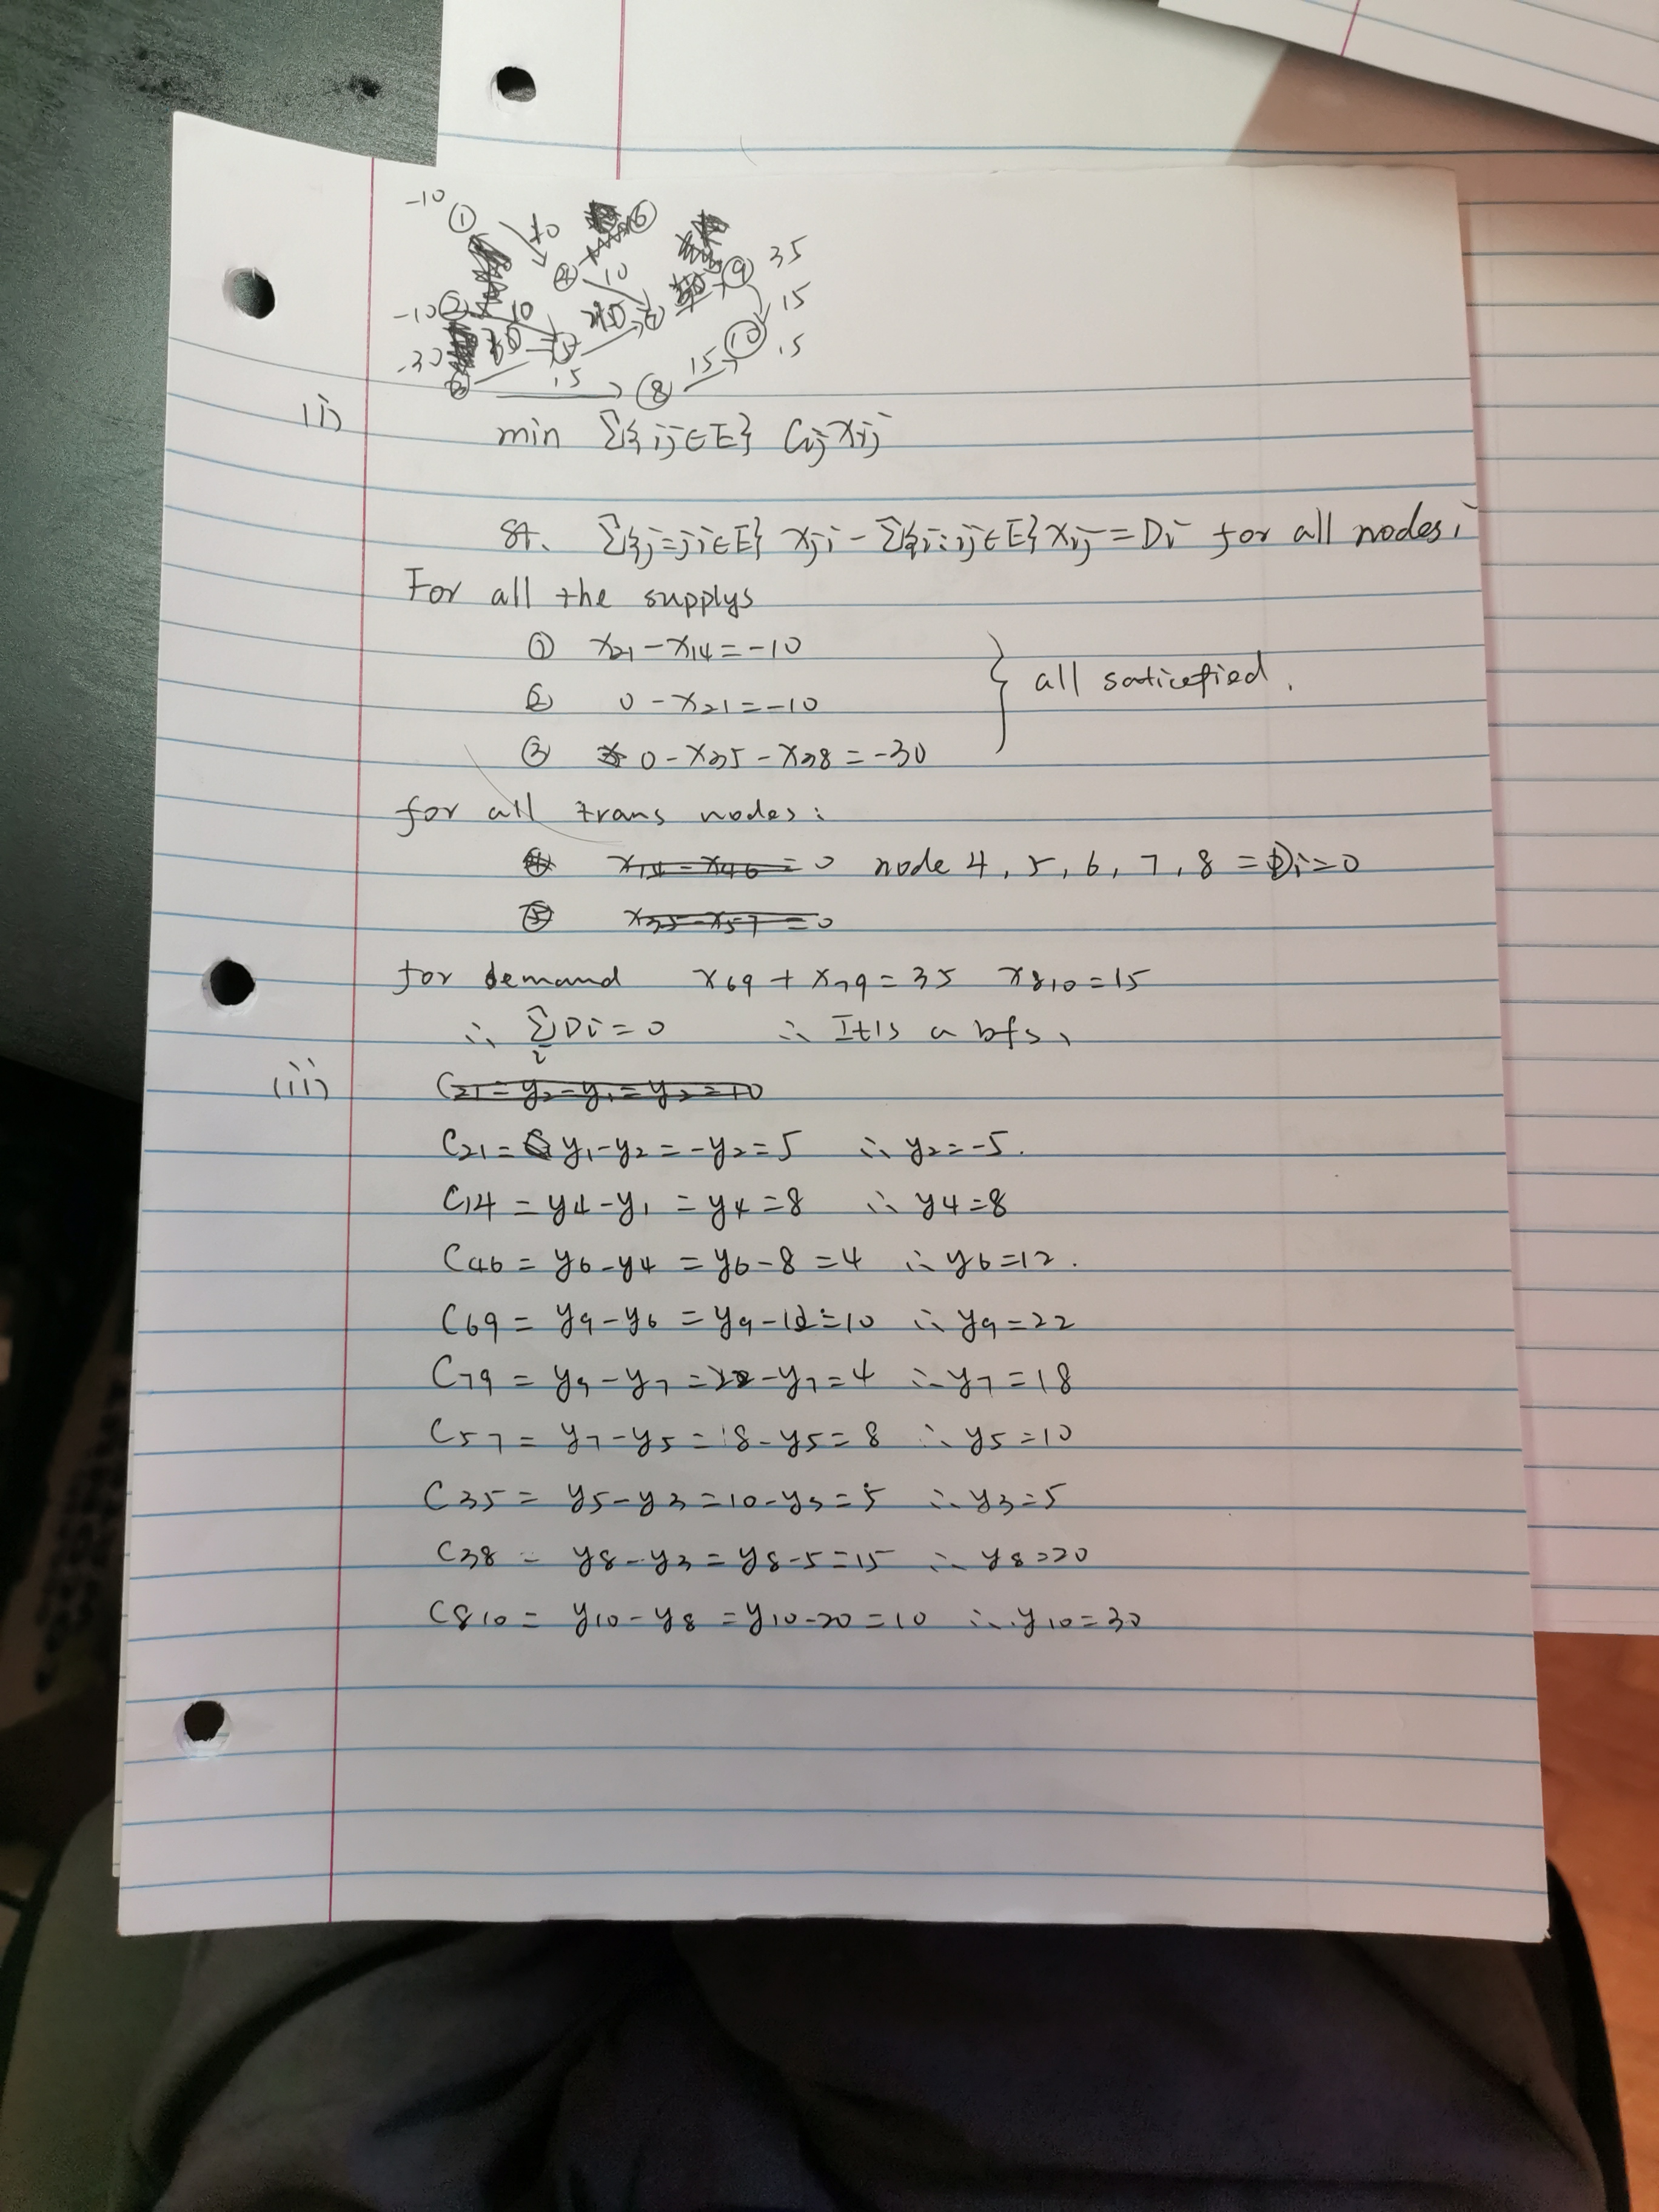 -10 ① 10 ⑥
④ 10 ⑨ 35
-10 ② 10 ⑦ 15
-30 ⑩ 15
③ 15 ⑧ 15
(i) min Σ{ij∈E} Cij Xij
st. Σ{j=ji∈E} Xji - Σ{i:ij∈E} Xij = Di for all nodes i
For all the supplys
① x21-x14=-10
② 0-x21=-10
③ 0-x35-x38=-30
} all saticefied.
for all trans nodes:
④ x14-x46=0 node 4, 5, 6, 7, 8 = Di=0
⑤ x35-x57=0
for demand x69+x79=35 x810=15
∴ ΣDi=0 ∴ It is a bfs,
i
(ii) C21=y2-y1=y2=10
C21= y1-y2=-y2=5 ∴ y2=-5.
C14=y4-y1=y4=8 ∴ y4=8
C46=y6-y4=y6-8=4 ∴ y6=12.
C69=y9-y6=y9-12=10 ∴ y9=22
C79=y9-y7=22-y7=4 ∴ y7=18
C57=y7-y5=18-y5=8 ∴ y5=10
C35=y5-y3=10-y3=5 ∴ y3=5
C38=y8-y3=y8-5=15 ∴ y8=20
C810=y10-y8=y10-20=10 ∴ y10=30